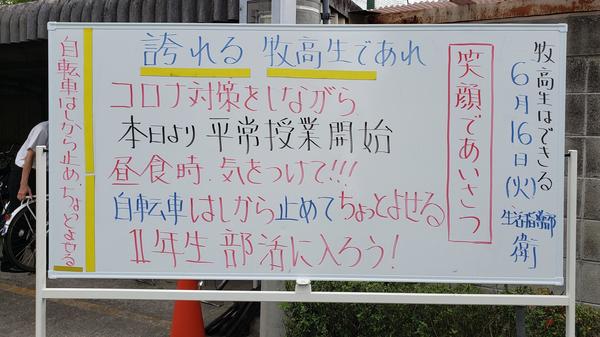 牧高生はできる
6月16日(火)
生活指導部
衛
笑顔であいさつ
誇れる 牧高生であれ
コロナ対策をしながら
本日より平常授業開始
昼食時、気をつけて!!!
自転車はしから止めてちょっとよせる
1年生 部活に入ろう!
自転車はしから止め、ちょっとよせる